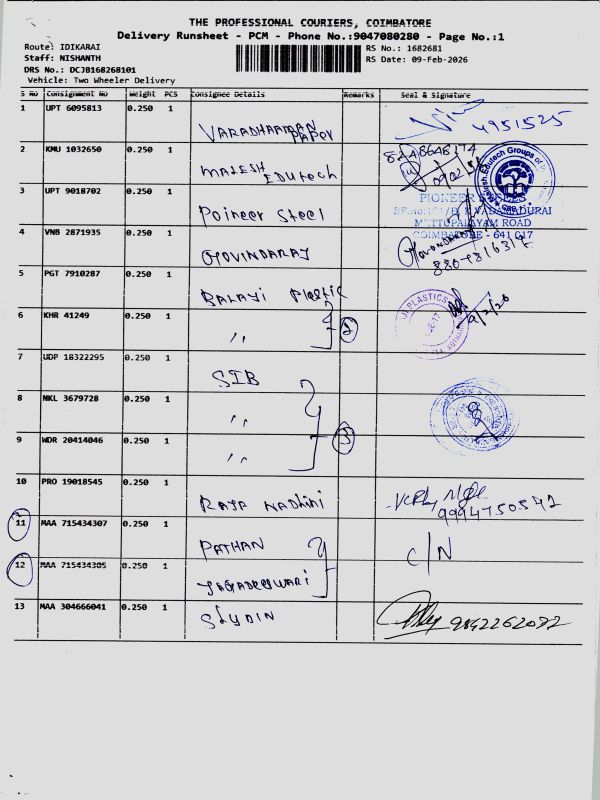 THE PROFESSIONAL COURIERS, COIMBATORE
Delivery Runsheet - PCM - Phone No.:9047080280 - Page No.:1
Route: IDIKARAI
RS No.: 1682681
Staff: NISHANTH
RS Date: 09-Feb-2026
DRS No.: DCJB168268101
Vehicle: Two Wheeler Delivery
S No Consignment No Weight PCS Consignee Details Remarks Seal & Signature
1 UPT 6095813 0.250 1 4951525
2 KMU 1032650 0.250 1 MAHESH EDUTECH
3 UPT 9018702 0.250 1 Poineer Steel
PIONEER
MUTTUPALAYAM ROAD
COIMBATORE - 641 017
4 VNB 2871935 0.250 1 GOVINDARAJ
5 PGT 7910287 0.250 1 BALAJI Plastic
6 KHR 41249 0.250 1 〃 2
PLASTICS
7 UDP 18322295 0.250 1 SIB
8 NKL 3679728 0.250 1 〃
9 WDR 20414046 0.250 1 〃 3
10 PRO 19018545 0.250 1 RAJA NADHINI 9994750542
11 MAA 715434307 0.250 1 PATHAN C/N
12 MAA 715434305 0.250 1 JAGADESWARI
13 MAA 304666041 0.250 1 9842262082